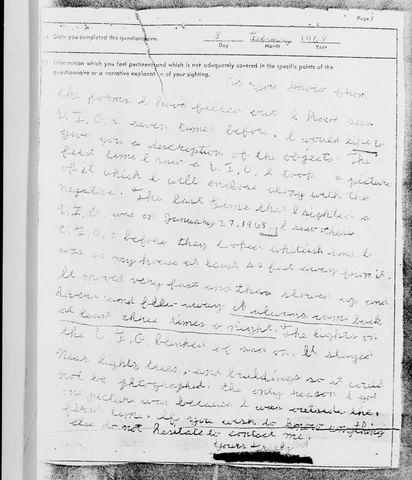 Page 7
Date you completed this questionnaire: 8 February 1968
Day Month Year
Information which you feel pertinent and which is not adequately covered in the specific points of the
questionnaire or a narrative explanation of your sighting.
As you know from
the forms I have filled out I have seen
U.F.O.s seven times before. I would like to
give you a description of the objects. The
first time I saw a U.F.O. I took a picture
of it which I will enclose along with the
negative. The last time that I sighted a
U.F.O. was on January 27, 1968. I saw these
U.F.O.s before they looked whitish and I
was in my house at least 50 feet away from it.
It moved very fast and then slowed up and
hovers and flew away it always came back
at least three times a night. The lights on
the U.F.O. blinked off and on. It stayed
near lights, trees, and buildings so it could
not be photographed. the only reason I got
on picture was because I was outside the
first time. if you wish to know anything
else do not hesitate to contact me.
Yours truly